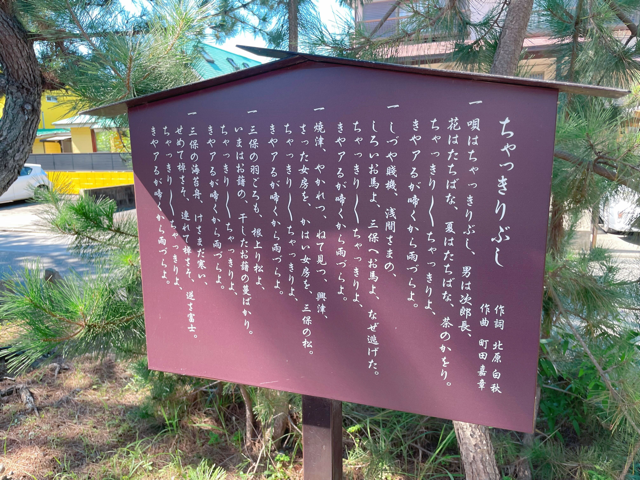 ちゃっきりぶし
作詞 北原白秋
作曲 町田嘉章
一 唄はちゃっきりぶし、男は次郎長、
花はたちばな、夏はたちばな、茶のかをり。
ちゃっきり〳〵ちゃっきりよ、
きやアるが啼くから雨づらよ。
一 しづや賤機、浅間さまの、
しろいお馬よ、三保のお馬よ、なぜ逃げた。
ちゃっきり〳〵ちゃっきりよ、
きやアるが啼くから雨づらよ。
一 焼津、やかれつ、ねて見つ、興津、
さった女房を、かはい女房を、三保の松。
ちゃっきり〳〵ちゃっきりよ、
きやアるが啼くから雨づらよ。
一 三保の羽ごろも、根上り松よ、
いまはお藷の、干したお藷の蔓ばかり。
ちゃっきり〳〵ちゃっきりよ、
きやアるが啼くから雨づらよ。
一 三保の海苔舟、けさまだ寒い、
せめて棹さそ、連れて棹さそ、逆さ富士。
ちゃっきり〳〵ちゃっきりよ、
きやアるが啼くから雨づらよ。